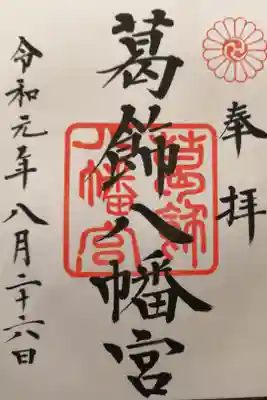 奉拝
葛飾八幡宮
葛飾八幡宮
令和元年八月二十六日